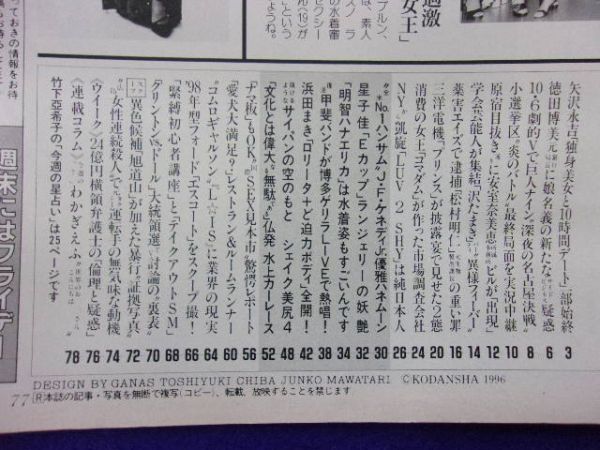 っておきの情報をお待
週末にはフライデー
ブルン、
は、素人
スノ ラ
の水着審
ん(19)が
セクシー
」という
ようね。
過激
女王」
矢沢永吉独身美女と10時間デート一部始終 3
徳田博美元銀行に娘名義の新たな疑惑 6
10・6劇的Vで巨人ナイン「深夜の名古屋決戦」 8
小選挙区"炎のバトル"最終局面を実況中継 10
原宿目抜きに安室奈美恵ビルが「出現」 12
学会芸能人が集結「沢たまき」異様フィーバー 14
薬害エイズで逮捕「松村明仁」の重い罪 16
三洋電機「プリンス」が披露宴で見せた2態 20
消費の女王「コマダム」が作った市場調査会社 24
NY凱旋「LUV 2 SHY」は純日本人 26
No.1ハンサム「J・F・ケネディ」優雅ハネムーン 30
星子佳「Eカップ」ランジェリーの妖艶 32
「明智ハナエリカ」は水着姿もすごいんです 34
甲斐バンドが博多ゲリラLIVEで熱唱! 38
浜田まき「ロリータ+ど迫力ボディ」全開! 42
サイパンの空のもと シェイク美尻4 48
「文化とは偉大な無駄」仏発 水上カーレース 52
「ナマ板」もOK SEX見本市「驚愕」レポート 56
「愛犬大満足」レストラン&ルームランナー 60
「コムロギャルソン」「L☆IS」に業界の現実 64
'98年型フォード「エスコート」をスクープ撮! 66
「緊縛初心者講座」と「テイクアウトSM」 68
「クリントンvs.ドール」大統領選討論の"裏表" 70
異色候補「旭道山」が加えた暴行"証拠写真" 72
女性連続殺人で運転手の無気味な動機 74
《ウイーク》24億円横領弁護士の「倫理と疑惑」 76
《連載コラム》わかぎえふ 78
竹下亜希子の「今週の星占い」は25ページです
DESIGN BY GANAS TOSHIYUKI CHIBA JUNKO MAWATARI ©KODANSHA 1996
77 Ⓡ本誌の記事・写真を無断で複写(コピー)、転載、放映することを禁じます